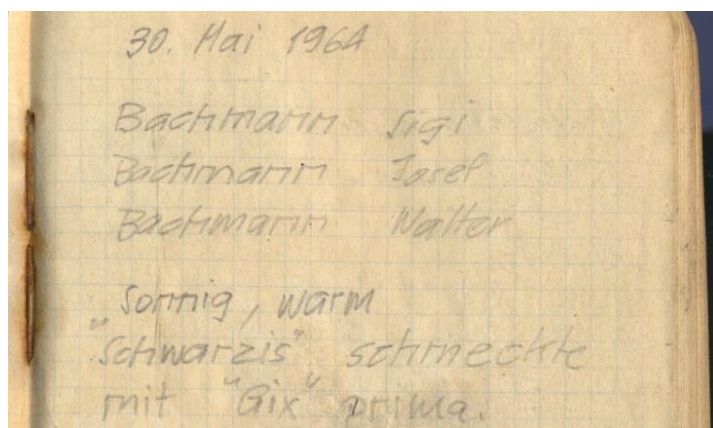 30. Mai 1964
Bachmann Sigi
Bachmann Josef
Bachmann Walter
Sonnig, warm
"Schwarzis" schmeckte
mit "Gix" prima.